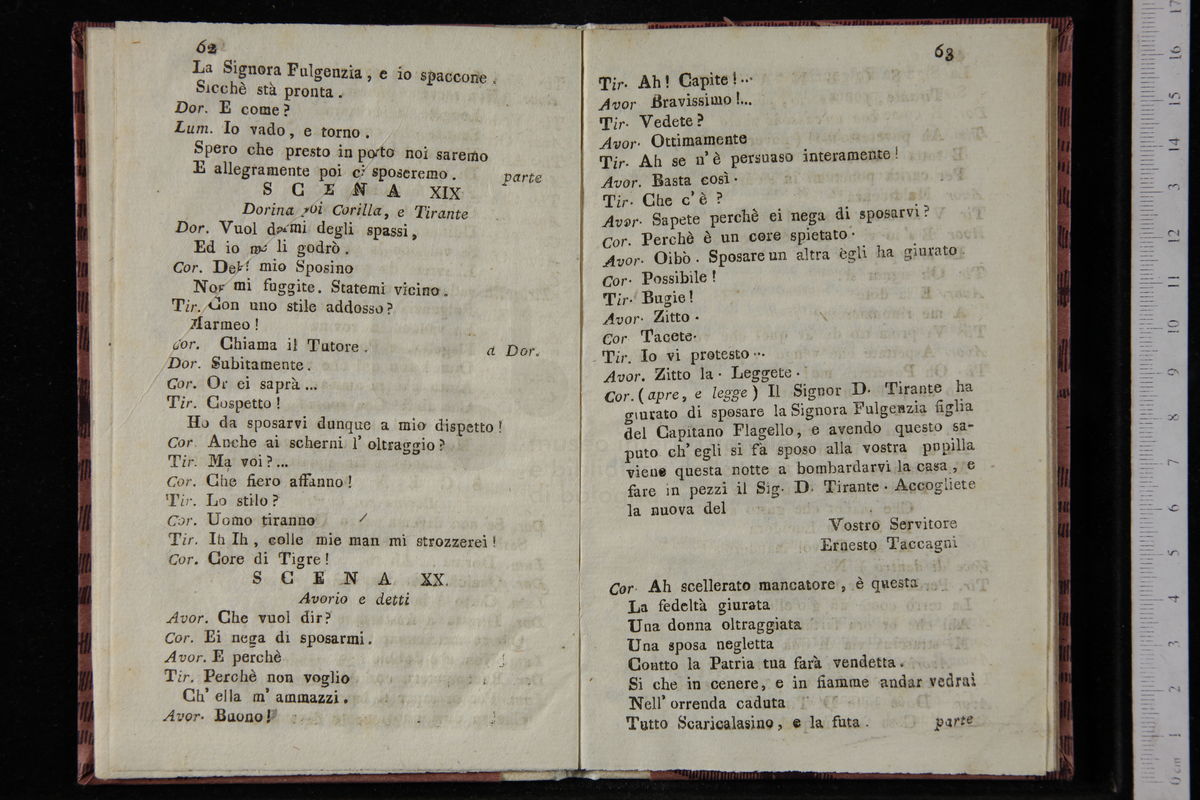 62
La Signora Fulgenzia, e io spaccone.
Sicchè stà pronta.
Dor. E come?
Lum. Io vado, e torno.
Spero che presto in porto noi saremo
E allegramente poi ci sposeremo. parte
SCENA XIX
Dorina poi Corilla, e Tirante
Dor. Vuol darmi degli spassi,
Ed io me li godrò.
Cor. Deh! mio Sposino
Non mi fuggite. Statemi vicino.
Tir. Con uno stile addosso?
Marmeo!
Cor. Chiama il Tutore. a Dor.
Dor. Subitamente.
Cor. Or ei saprà...
Tir. Cospetto!
Ho da sposarvi dunque a mio dispetto!
Cor. Anche ai scherni l' oltraggio?
Tir. Ma voi?...
Cor. Che fiero affanno!
Tir. Lo stilo?
Cor. Uomo tiranno
Tir. Ih Ih, colle mie man mi strozzerei!
Cor. Core di Tigre!
SCENA XX.
Avorio e detti
Avor. Che vuol dir?
Cor. Ei nega di sposarmi.
Avor. E perchè
Tir. Perchè non voglio
Ch' ella m' ammazzi.
Avor. Buono!
63
Tir. Ah! Capite!...
Avor Bravissimo!...
Tir. Vedete?
Avor. Ottimamente
Tir. Ah se n' è persuaso interamente!
Avor. Basta così.
Tir. Che c' è?
Avor. Sapete perchè ei nega di sposarvi?
Cor. Perchè è un core spietato.
Avor. Oibò. Sposare un altra egli ha giurato
Cor. Possibile!
Tir. Bugie!
Avor. Zitto.
Cor Tacete.
Tir. Io vi protesto...
Avor. Zitto la. Leggete.
Cor. (apre, e legge) Il Signor D. Tirante ha
giurato di sposare la Signora Fulgenzia figlia
del Capitano Flagello, e avendo questo sa-
puto ch' egli si fà sposo alla vostra pupilla
viene questa notte a bombardarvi la casa, e
fare in pezzi il Sig. D. Tirante. Accogliete
la nuova del
Vostro Servitore
Ernesto Taccagni
Cor. Ah scellerato mancatore, è questa
La fedeltà giurata
Una donna oltraggiata
Una sposa negletta
Contto la Patria tua farà vendetta.
Si che in cenere, e in fiamme andar vedrai
Nell' orrenda caduta
Tutto Scaricalasino, e la futa. parte